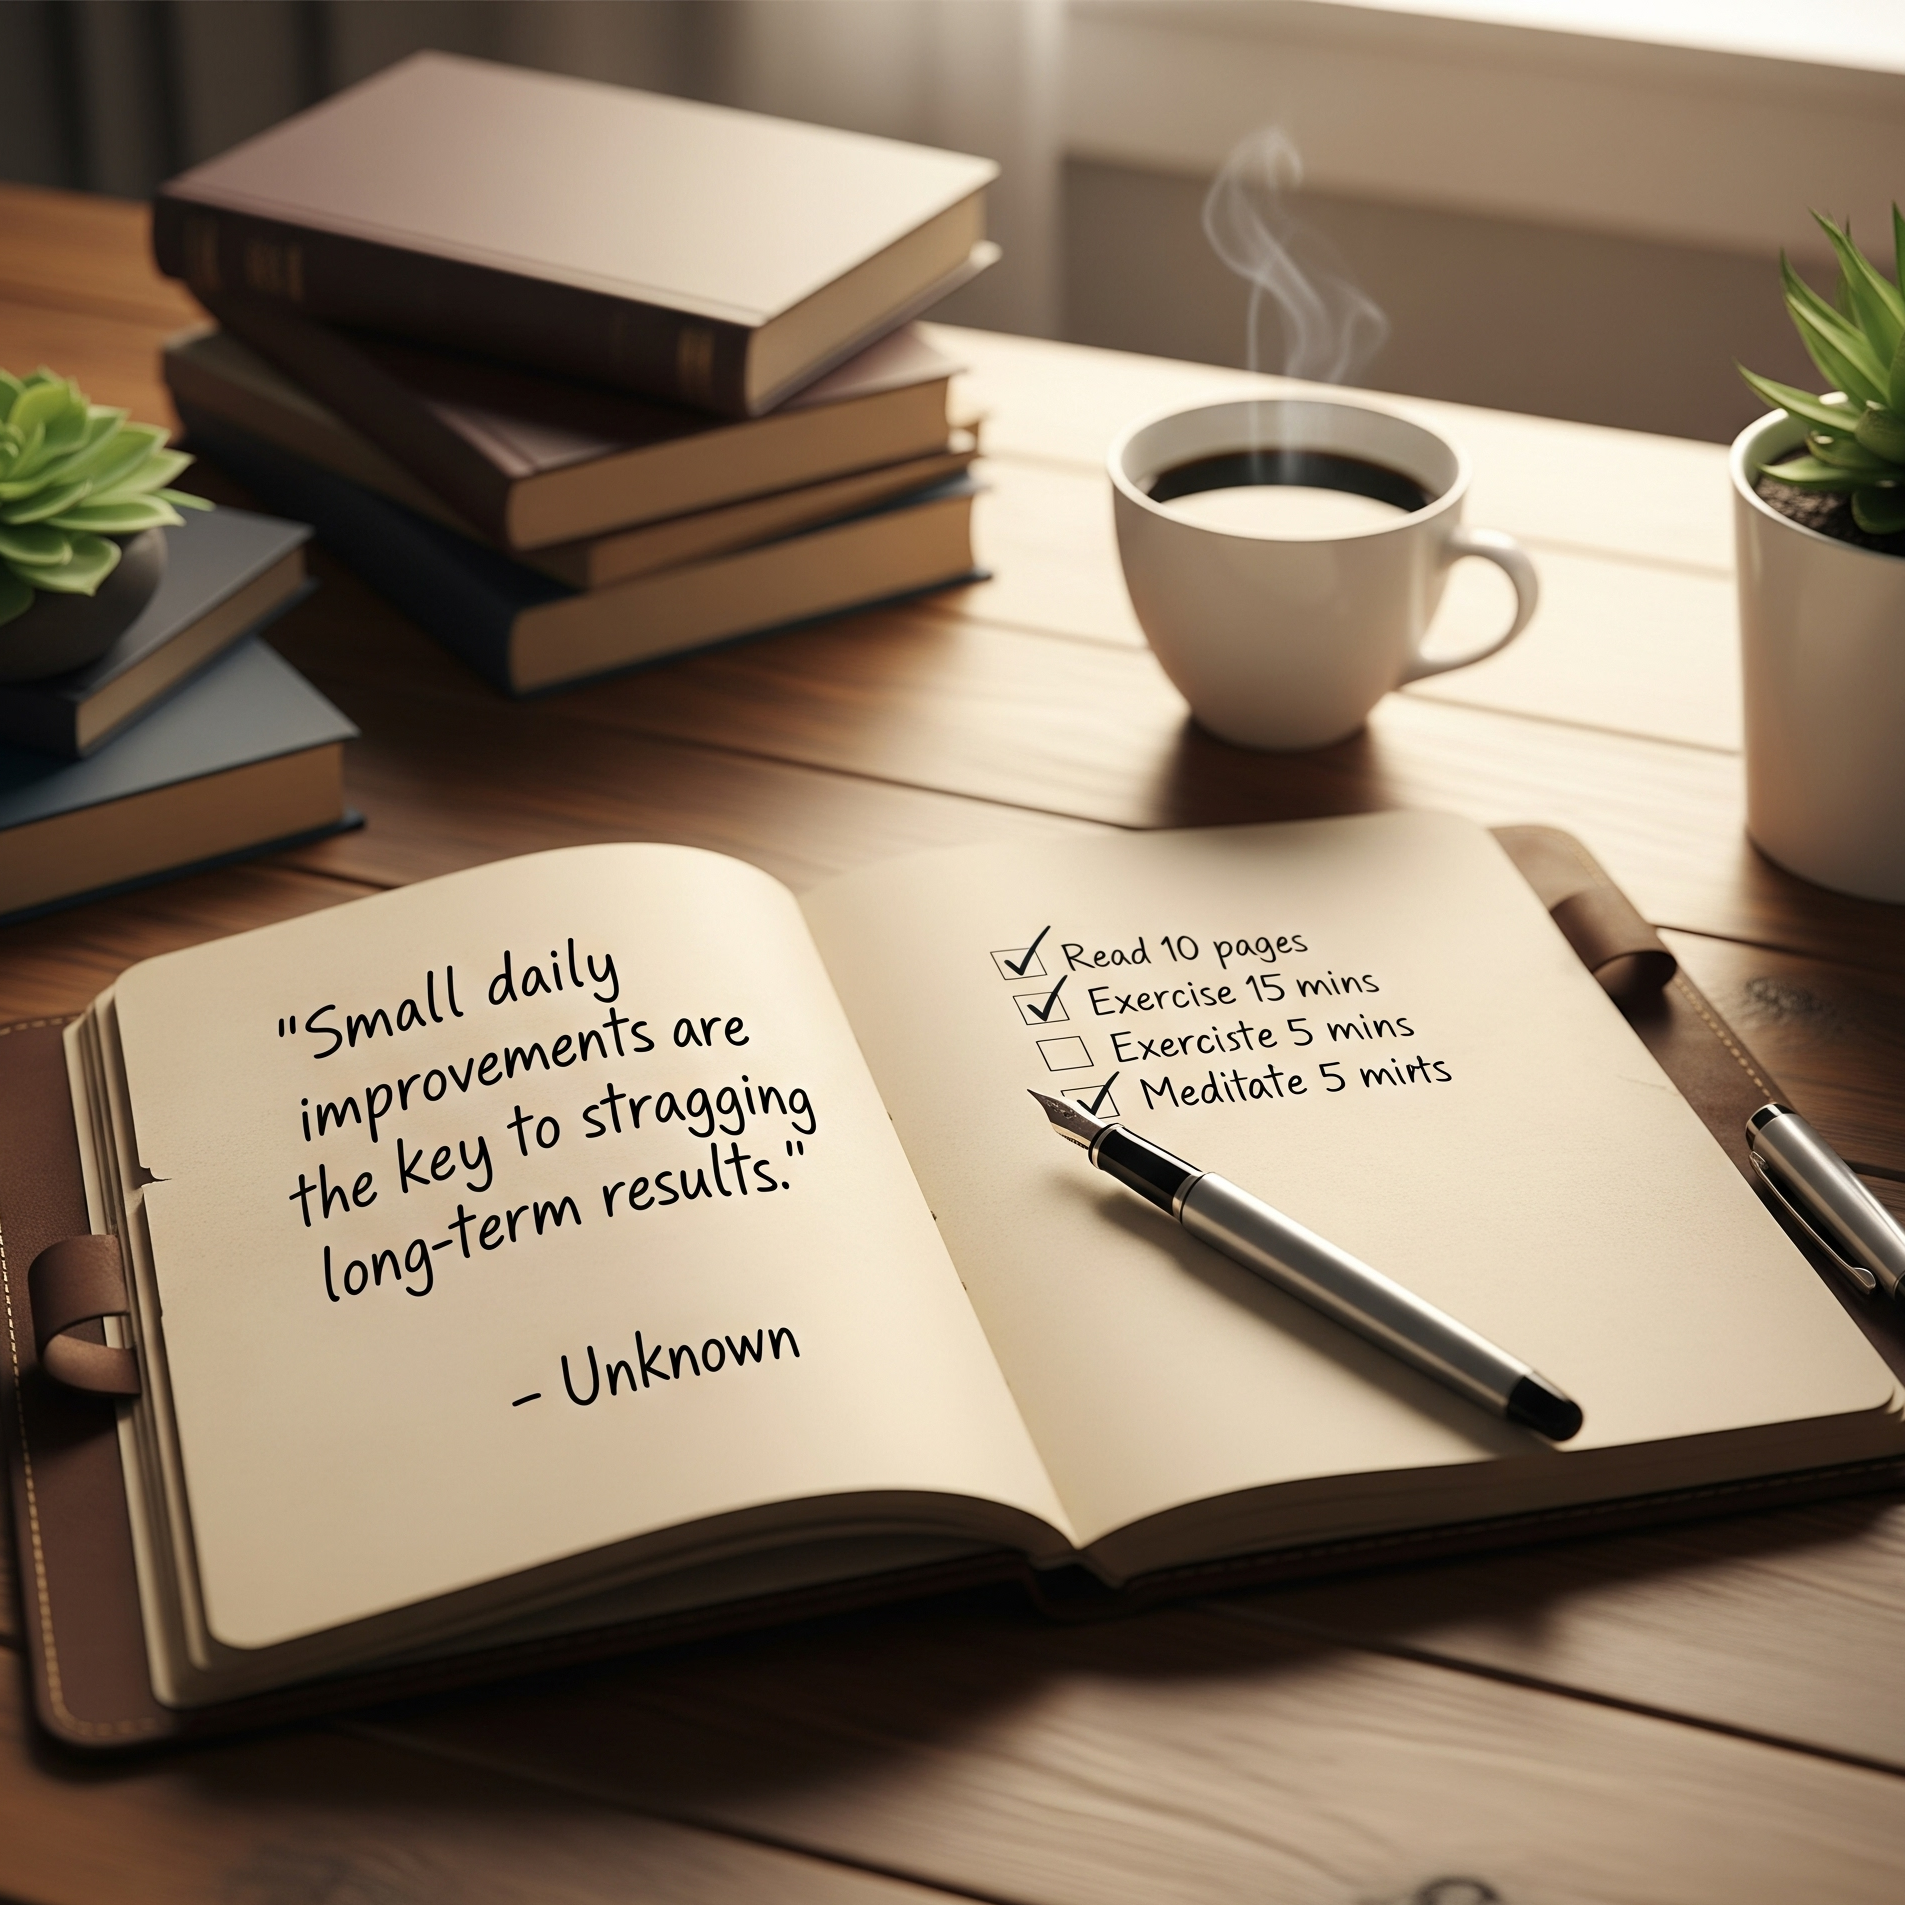 "Small daily
improvements are
the key to stragging
long-term results."
- Unknown
Read 10 pages
Exercise 15 mins
Exerciste 5 mins
Meditate 5 mirts